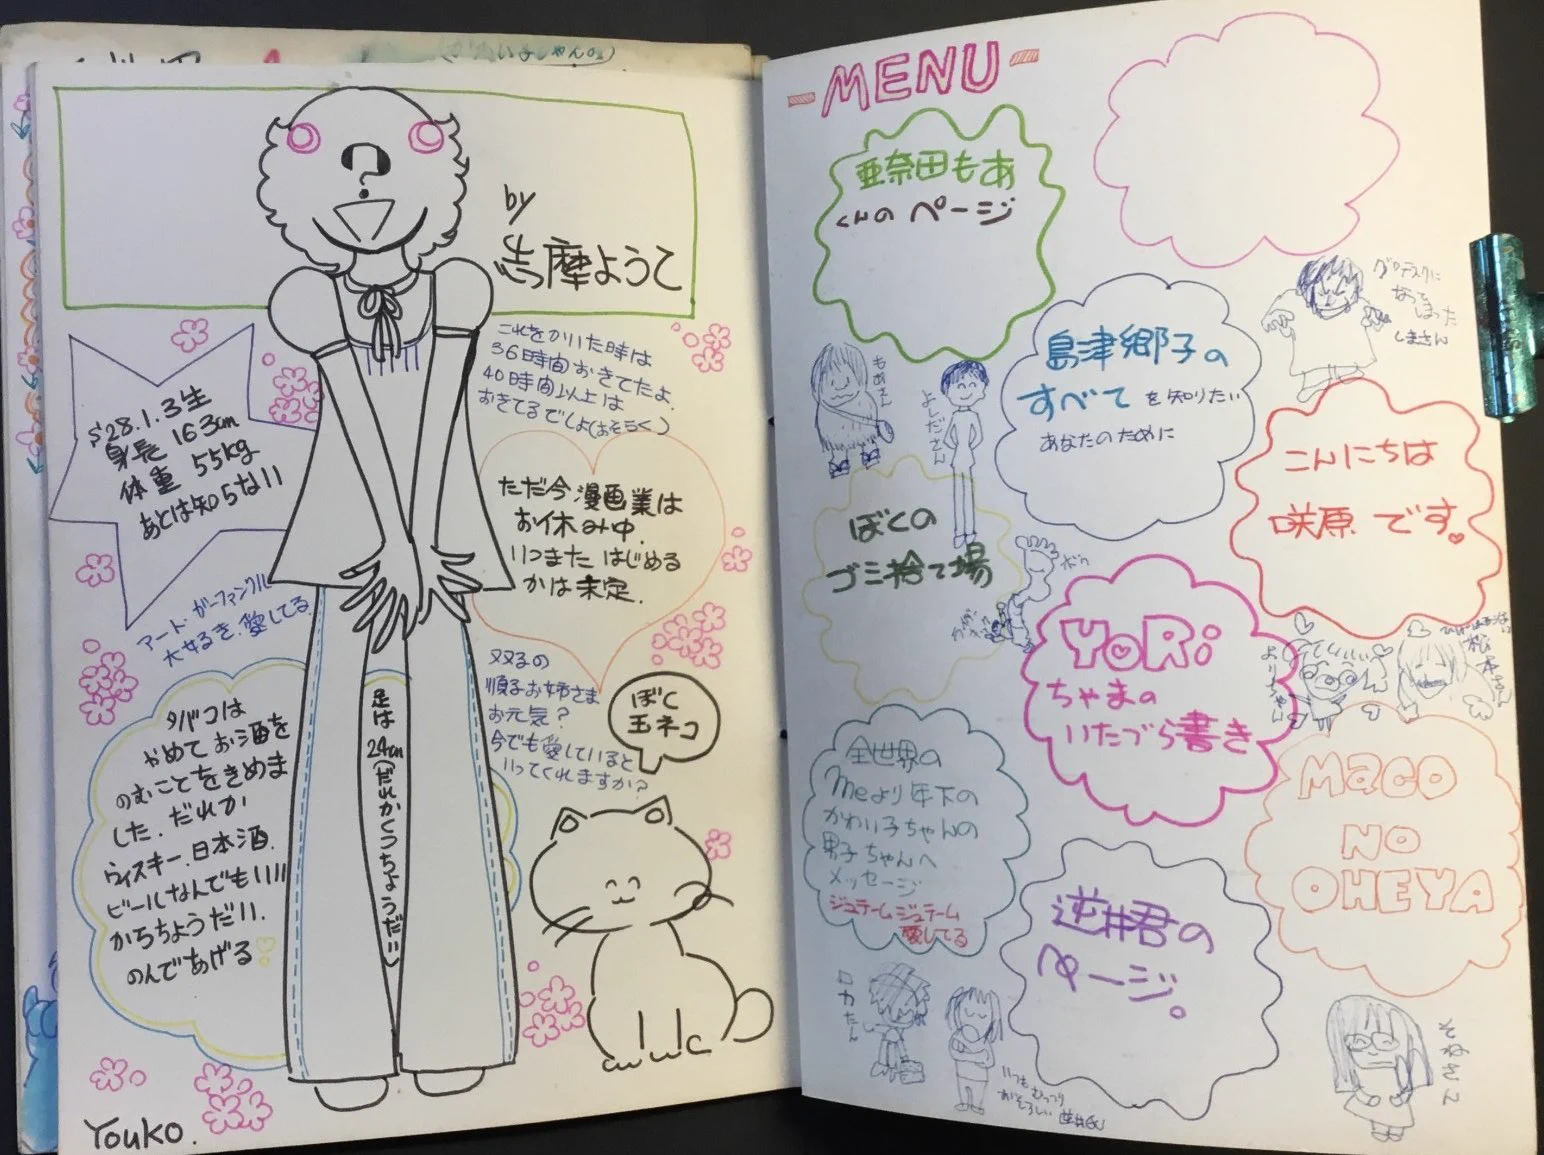 ?
by
志摩ようこ
S28.1.3生
身長 163cm
体重 55kg
あとは知らない
これをかいた時は
36時間おきてたよ.
40時間以上は
おきてるでしょ(おそらく)
ただ今漫画業は
お休み中.
いつまた はじめる
かは未定.
アート・ガーファンクル
大好き.愛してる
双子の
順子お姉さま
お元気?
今でも愛していると
いってくれますか?
ぼく
玉ネコ
タバコは
やめて お酒を
のむことをきめま
した. だれか
ウィスキー.日本酒.
ビールなんでもいい
からちょうだい.
のんであげる
足は24cm(だれかくつちょうだい)
Youko.
-MENU-
亜奈田もあ
くんの ページ
島津郷子の
すべて を知りたい
あなたのために
グロテスクに
なってしまった
しまさん
もあさん
よしださん
こんにちは
咲原 です。
ぼくの
ゴミ捨て場
YoRi
ちゃまの
いたづら書き
よりちゃん
全世界の
meより年下の
かわい子ちゃんの
男子ちゃんへ
メッセージ
ジュテームジュテーム
愛してる
MaCO
NO
OHEYA
逆井君の
ページ。
ロカたん
いつもむっつり
おそろしい 逆井氏
そねさん